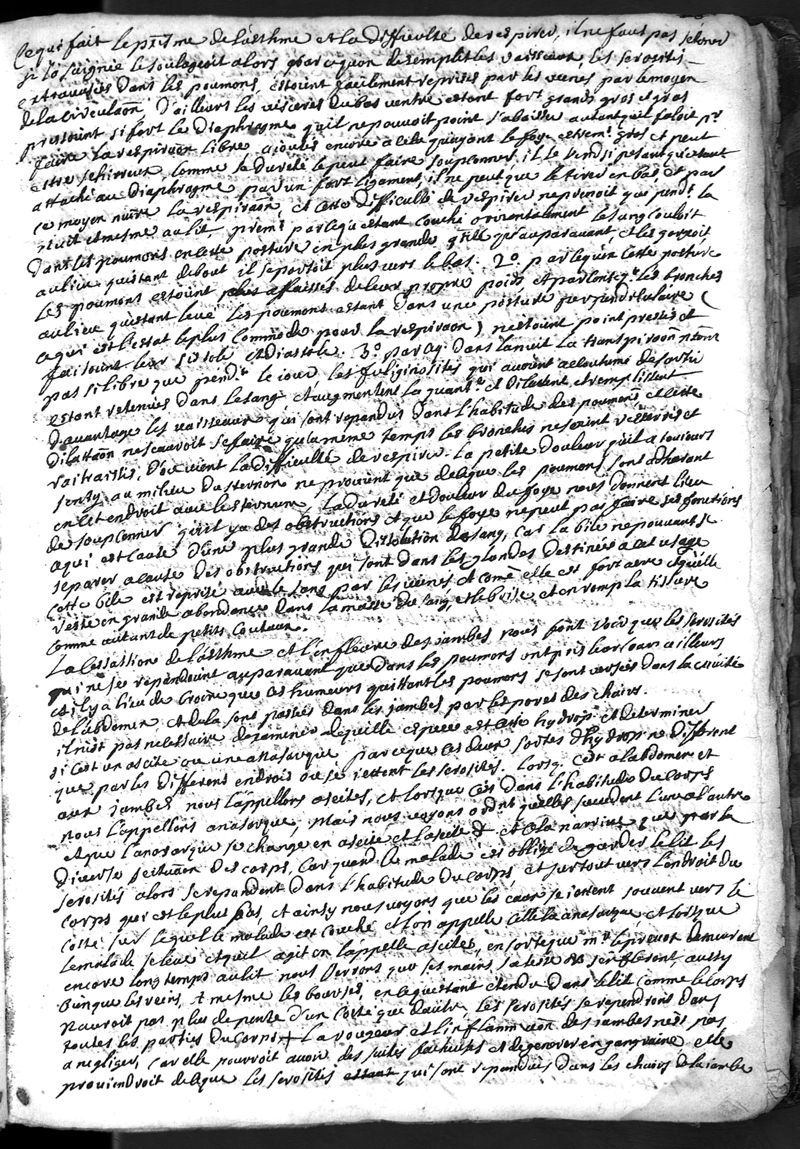 Ce qui fait le ptisme de l'asthme et la difficulté de respirer, il ne faut pas s'etoner
si la saignée le soulageoit alors parcequ'on desemplit les vaisseaux, les serosités
extravasées dans les poumons, estoint facilement reprises par les venes par le moyen
de la circulaõn. D'ailleurs les visceres du bas ventre estant fort grands gros et gras
pressoint si fort le diaphragme qu'il ne pouvoit point s'abaisser autant qu'il faloit pr
faire la respiraõn libre, aioutés encore a cela qu'ayant le foye extrem.t gros et peut
estre schirreux, comme la dureté le peut faire soupçonner, il le rend si pesant qu'estant
attaché au diaphragme par un fort ligament, il ne peut que le tirer en bas, et par
ce moyen nuire la respiraõn, et cette difficulté de respirer ne prenoit que pend.t la
nuit et mesme au lit, prem.t parcequ'estant couché orisentalement le sang couloit
dans les poumons en cette posture en plus grande q'tité qu'auparavant et les gorgeoit
au lieu qu'estant debout il se portoit plus vers le bas. 2.o parcequ'en cette posture
les poumons estoint plus affaissés de leur propre poids et par consequ.t les bronches
au lieu qu'estant levé les poumons estant dans une posture perpendiculaire (
ce qui est l'estat le plus commode pour la respiraõn) n'estoint point pressés et
faisoint leur sistole et diastole. 3.o parcq dans la nuit la transpiraõn n'etant
pas si libre que pend.t le iour les fuliginosités qui avoint accoutumé de sortir
estant retenues dans le sang et augmentent la quant.té et dilatent, et remplissent
davantage les vaisseaux qui sont repandus dans l'habitude des poumons et cette
dilataõn ne scauroit se faire qu'en mème temps les bronches ne soint resserrés et
rairaissis, d'ou vient la difficulté de respirer. La petite douleur qu'il a toujours
senty au milieu du sternon ne provient que de ceque les poumons sont adherant
en cet endroit avec le sternum, La dureté et douleur du foye nous donnent lieu
de soupçonner qu'il y a des obstructions et que le foye ne peut pas faire ses fonctions
ce qui est cause d'une plus grande dissolution du sang, car la bile ne pouvant se
separer a cause des obstructions qui sont dans les glandes destinées a cet usage
cette bile est reprise avec le sang par les venes et comẽ elle est fort acre et qu'elle
reste en grande abondance dans la masse du sang, elle le brise et en romp la tissure
comme autant de petits couteaux.
La cessation de l'asthme et l'enfleure des jambes nous font voir que les serosités
qui ne se rependoint auparavant que dans les poumons ont pris leur cours ailleurs
et il y a lieu de croire que ces humeurs quittant les poumons se sont versées dans la cavité
de l'abdomen et de la sont passées dans les jambes par les pores des chairs.
il n'est pas necessaire d'examiner de quelle espece est cette hydrop. et determiner
si c'est un ascite ou une anasarque parceque ces deux sortes d'hydrop ne different
que par les differens endrois ou se iettent les serosités. Lorsq. c'est a l'abdomen et
aux jambes nous l'appellons ascites, et lorsque c'est dans l'habitude du corps
nous l'appellons anasarque, mais nous voyons ord.nt qu'elles succedent l'une a l'autre
et que l'anasarque se change en ascite et l'ascite d et cela n'arrive que par la
diverse situaõn des corps, car quand le malade est obligé de garder le lit les
serosités alors se repandent dans l'habitude du corps, et surtout vers l'endroit du
corps qui est le plus bas, et ainsy nous voyons que les eaux se iettent souvent vers le
costé sur lequel le malade est couché et l'on appelle cella anasarque, et lorsque
le malade se leve et qu'il agit on l'appelle ascites, en sorteque m.r le prevot demeurant
encore long temps au lit nous verrons que ses mains, sa teste se gonfleront aussy
bien que les reins, et mesme les bourses, en ce qu'estant etendu dans le lit comme le corps
n'auroit pas plus de pente d'un costé que d'autre, les serosités se rependront dans
toutes les parties du corps + La rougeur et l'inflammaõn des jambes n'est pas
a negliger, car elle pourroit avoir des suites facheuses et degenerer en gangraine elle
proviendroit de ceque les serosités qui sont repandues dans les chairs de la iambe